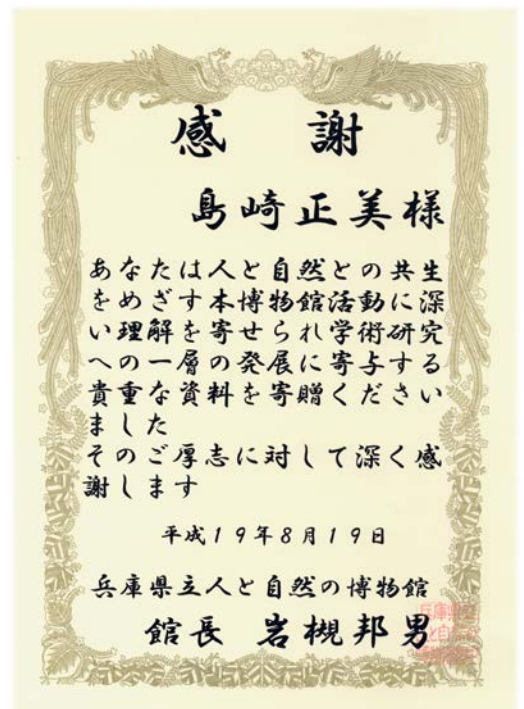 感謝
島崎正美様
あなたは人と自然との共生
をめざす本博物館活動に深
い理解を寄せられ学術研究
への一層の発展に寄与する
貴重な資料を寄贈ください
ました
そのご厚志に対して深く感
謝します
平成19年8月19日
兵庫県立人と自然の博物館
館長 岩槻邦男